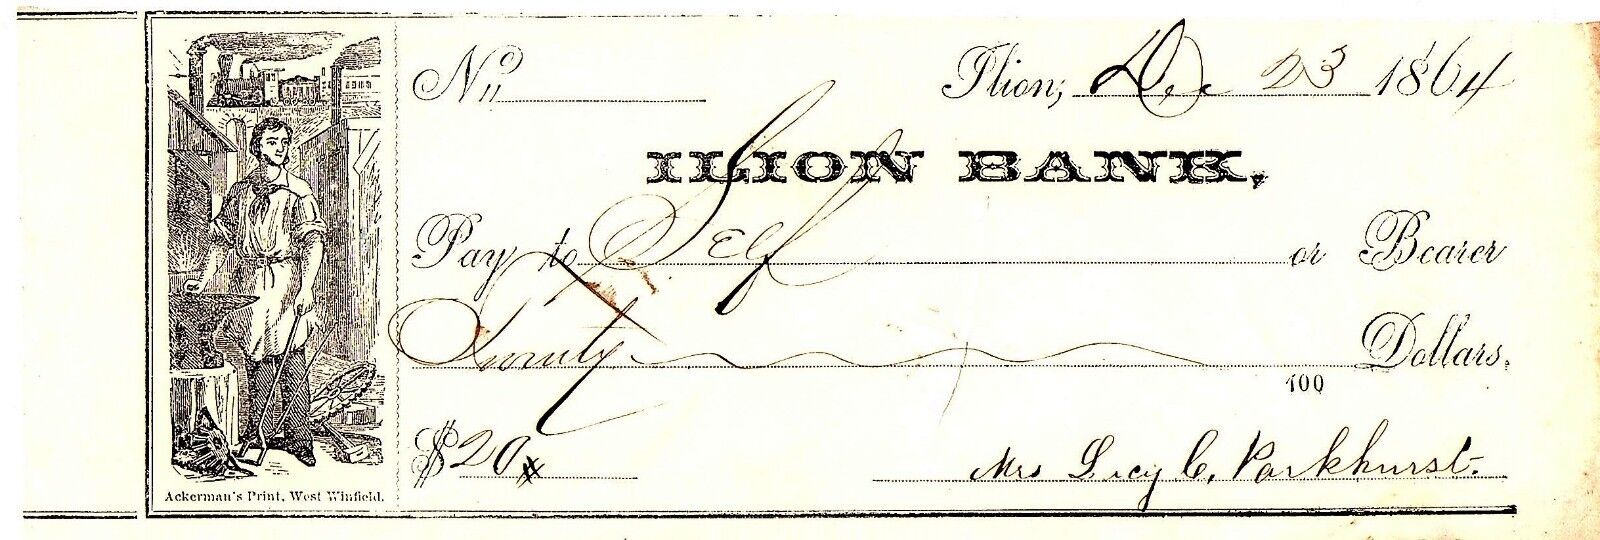 No.
Ilion, Dec 23 1864
ILION BANK,
Pay to Self or Bearer
Twenty Dollars,
100
$20
Mrs Lucy C. Parkhurst.
Ackerman's Print, West Winfield.